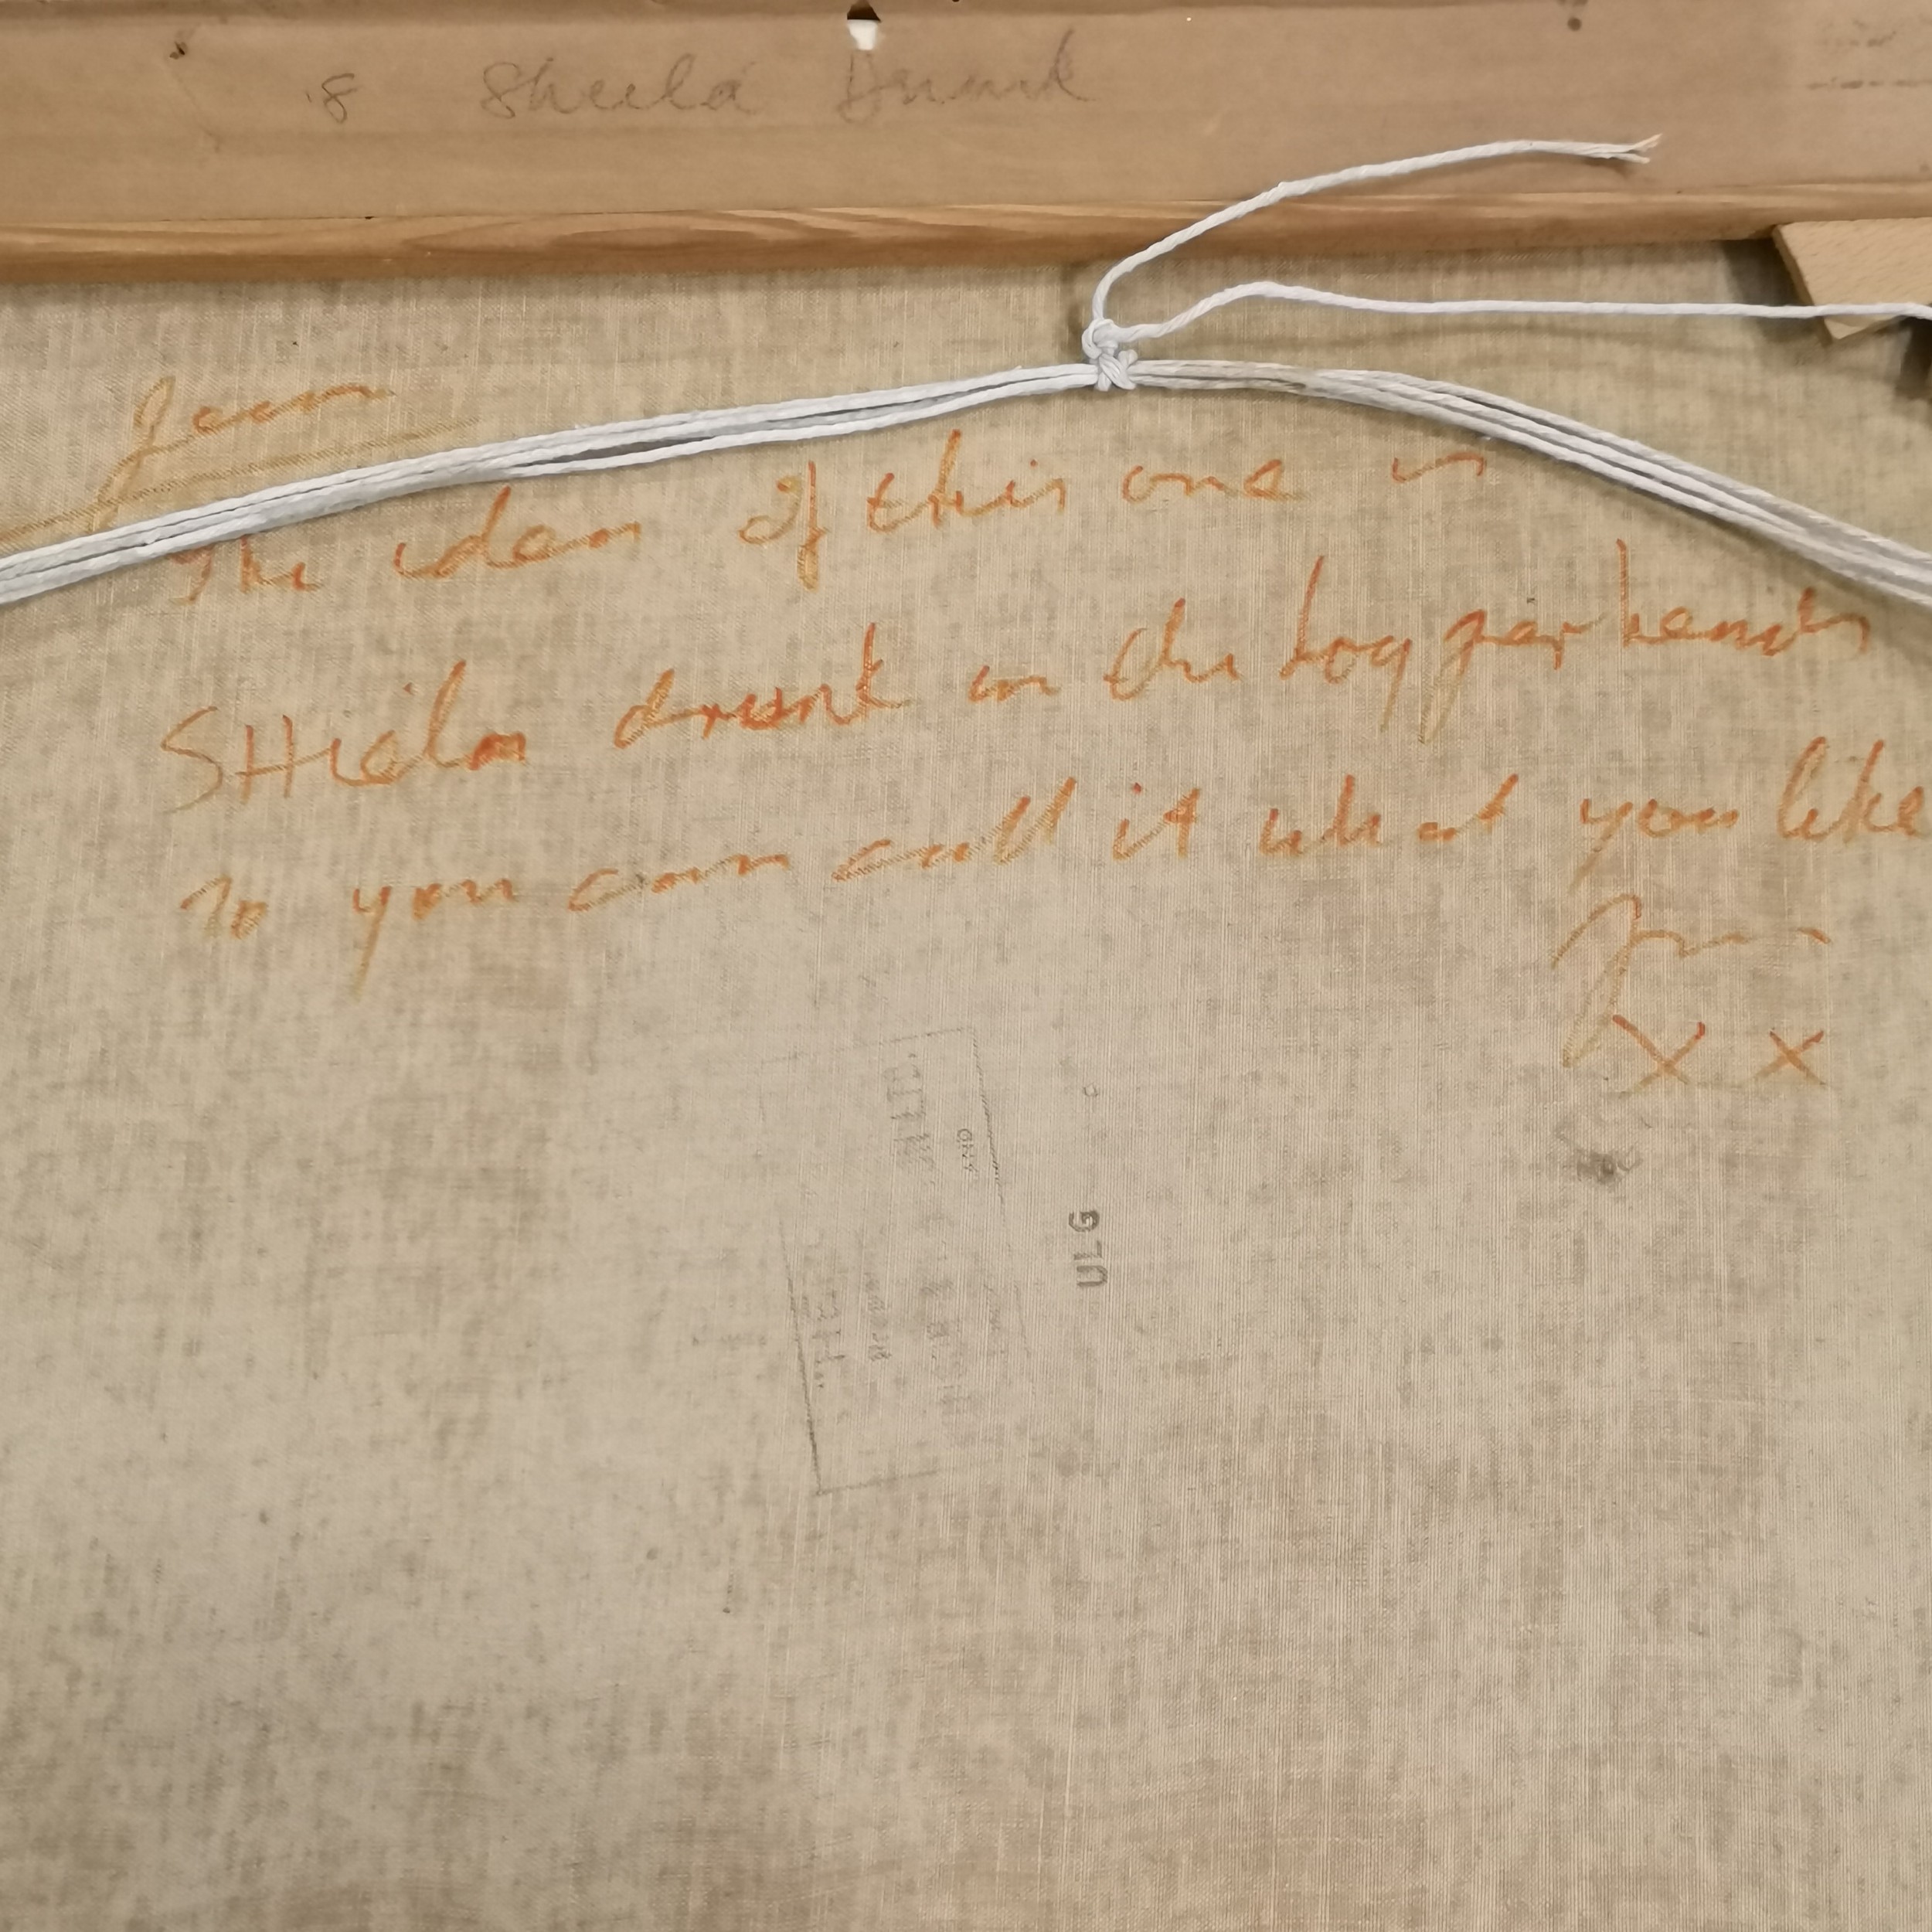 8 Sheila Drunk
Jean
The idea of this one is
SHiela drunk in the bog per hands
so you can call it what you like
X X
ULG